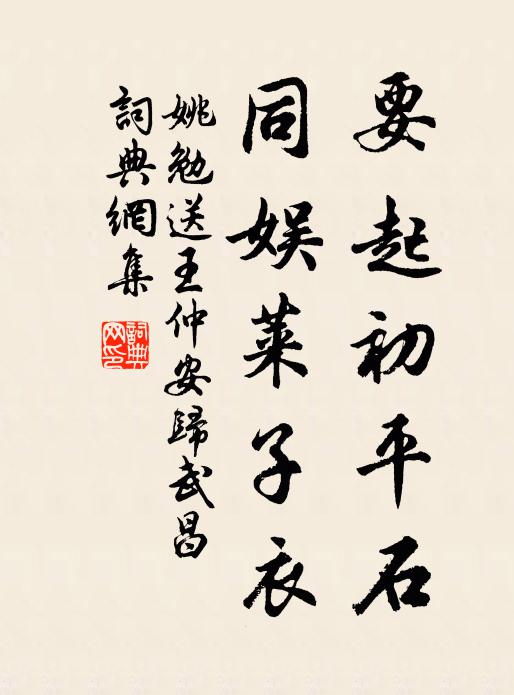 要起初平石
同娱萊子衣
姚勉送王仲安歸武昌
詞典網集
詞典網印